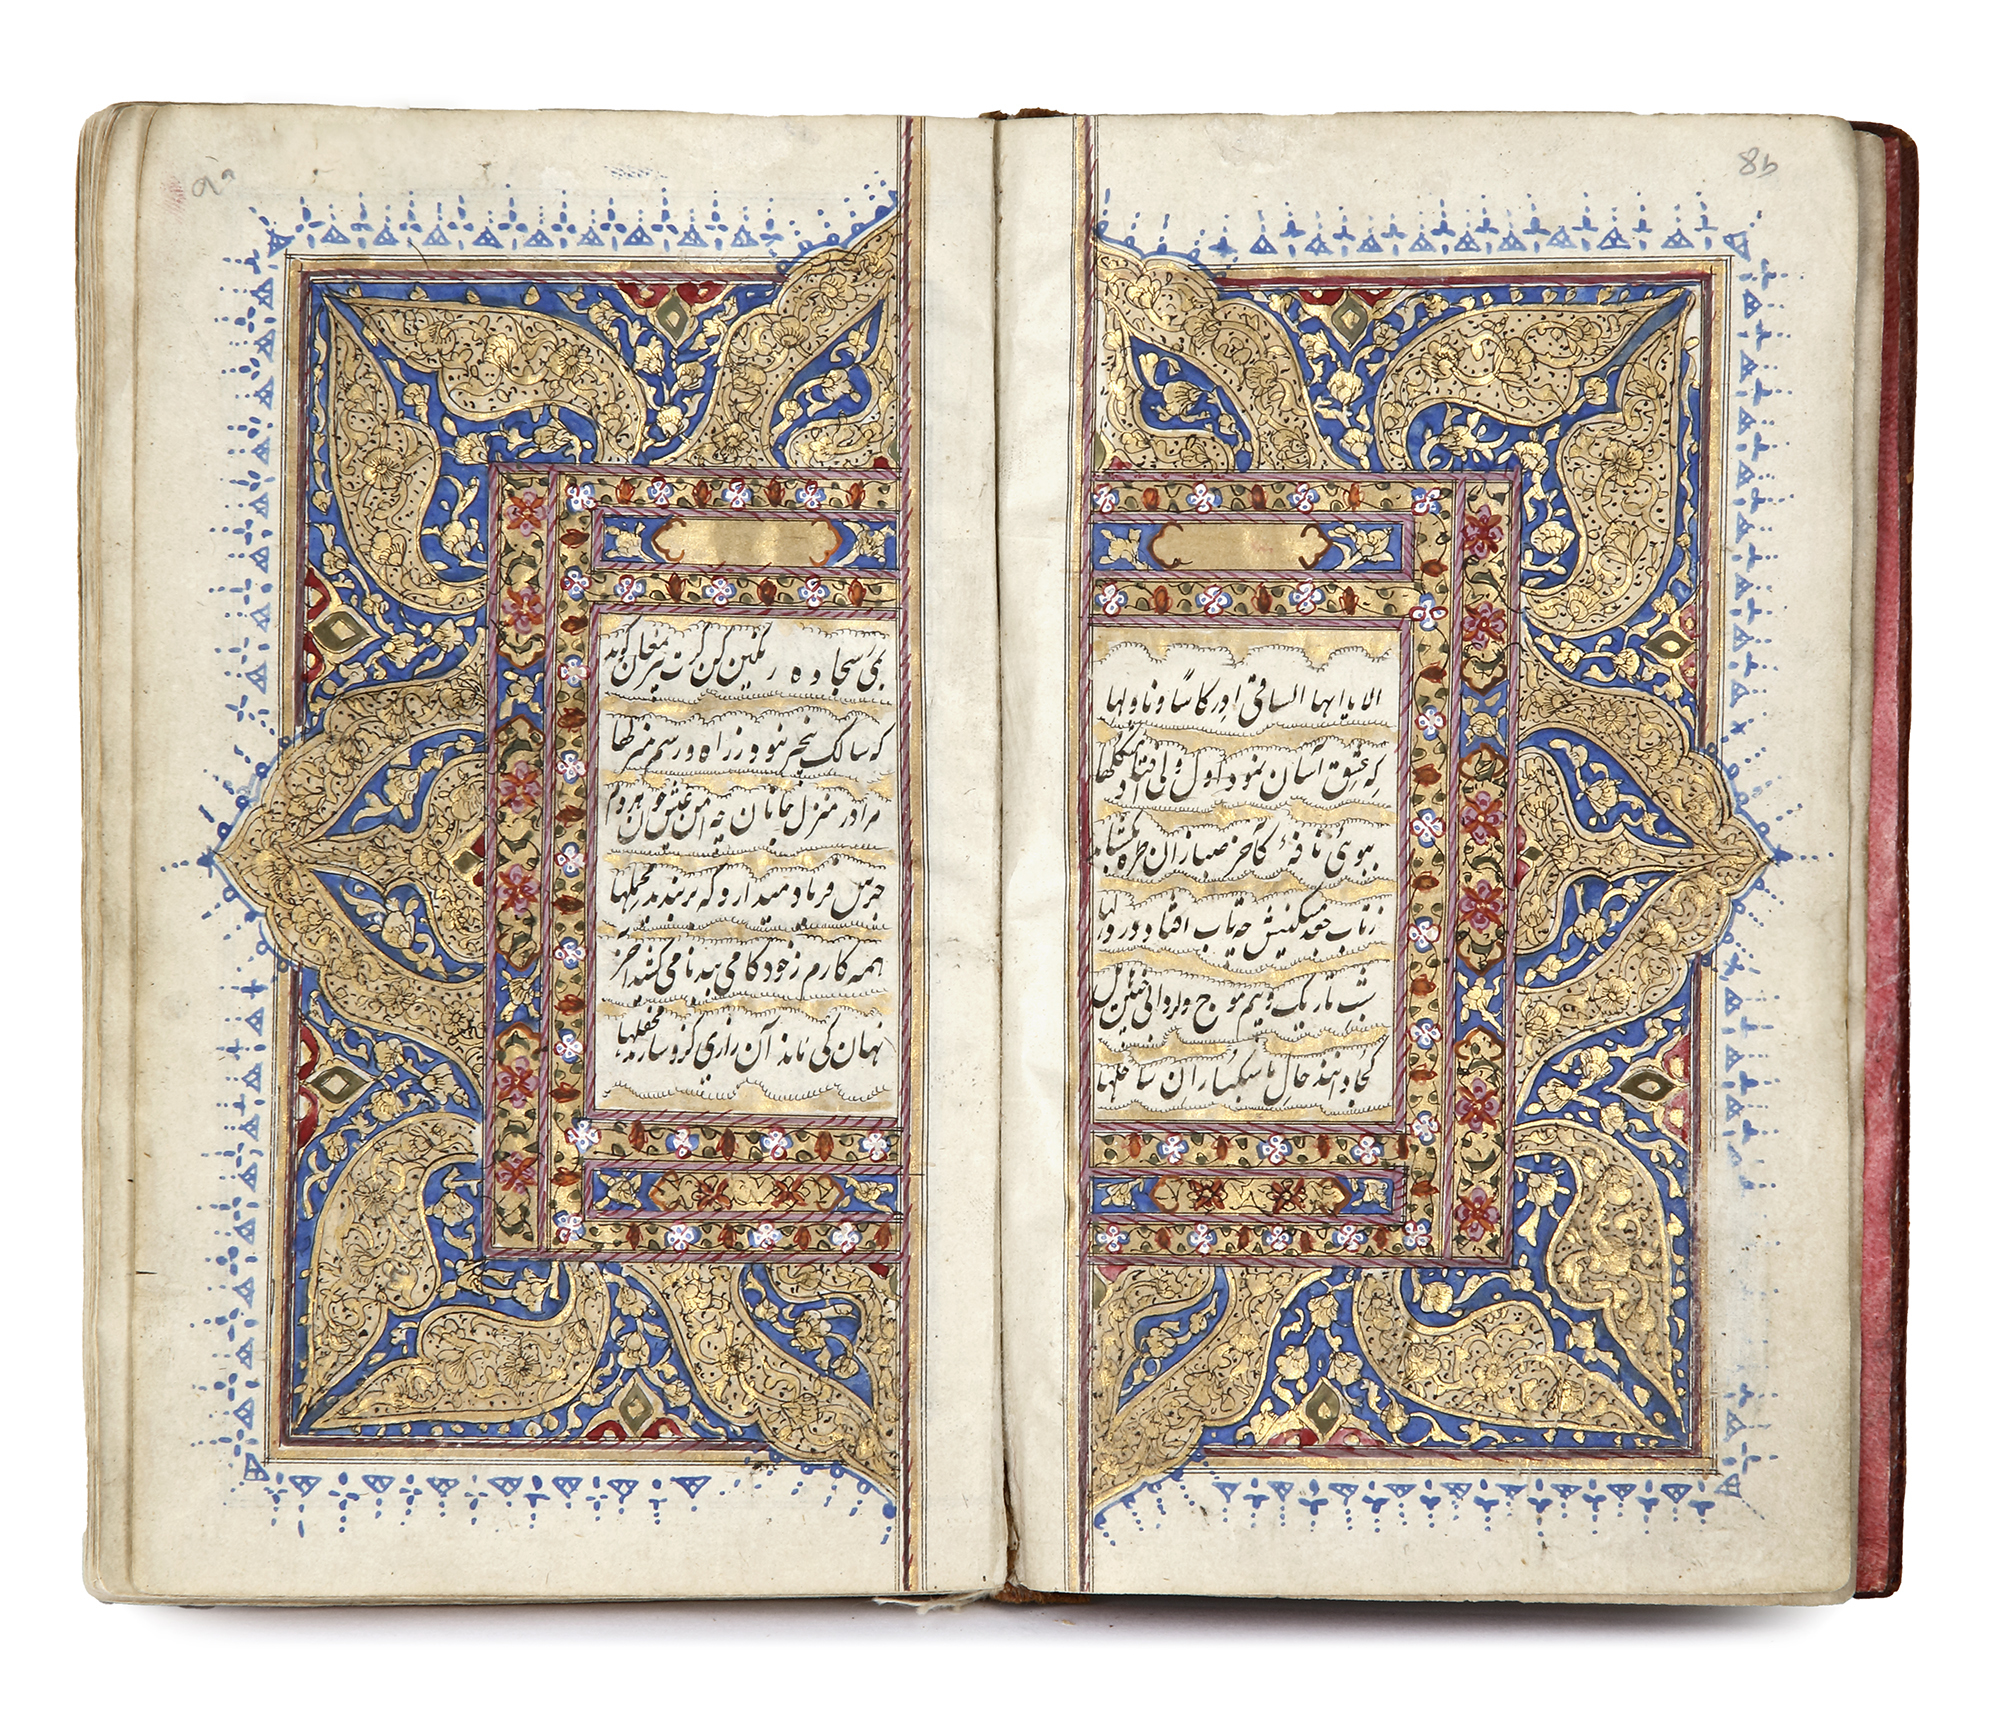 8b
الا یا ایها الساقی ادر کاسًا و ناولها
که عشق آسان نمود اول ولی افتاد مشکلها
ببوئی نافهٔ کآخر صبا زان طره بگشاید
زتاب جعد مشکینش چه تاب افتاد در دلها
شب تاریک و بیم موج و گردابی چنین هایل
کجا دانند حال ما سبکباران ساحلها
9a
بمی سجاده رنگین کن گرت پیر مغان گوید
که سالک بیخبر نبود ز راه و رسم منزلها
مرا در منزل جانان چه امن عیش چون هر دم
جرس فریاد میدارد که بربندید محملها
همه کارم ز خود کامی ببدنامی کشید آخر
نهان کی ماند آن رازی کزو سازند محفلها